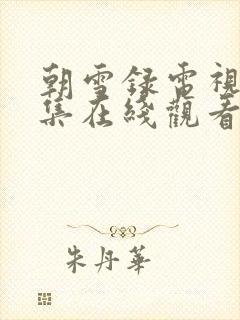 朝雪録電視
集在綫觀看
朱丹華